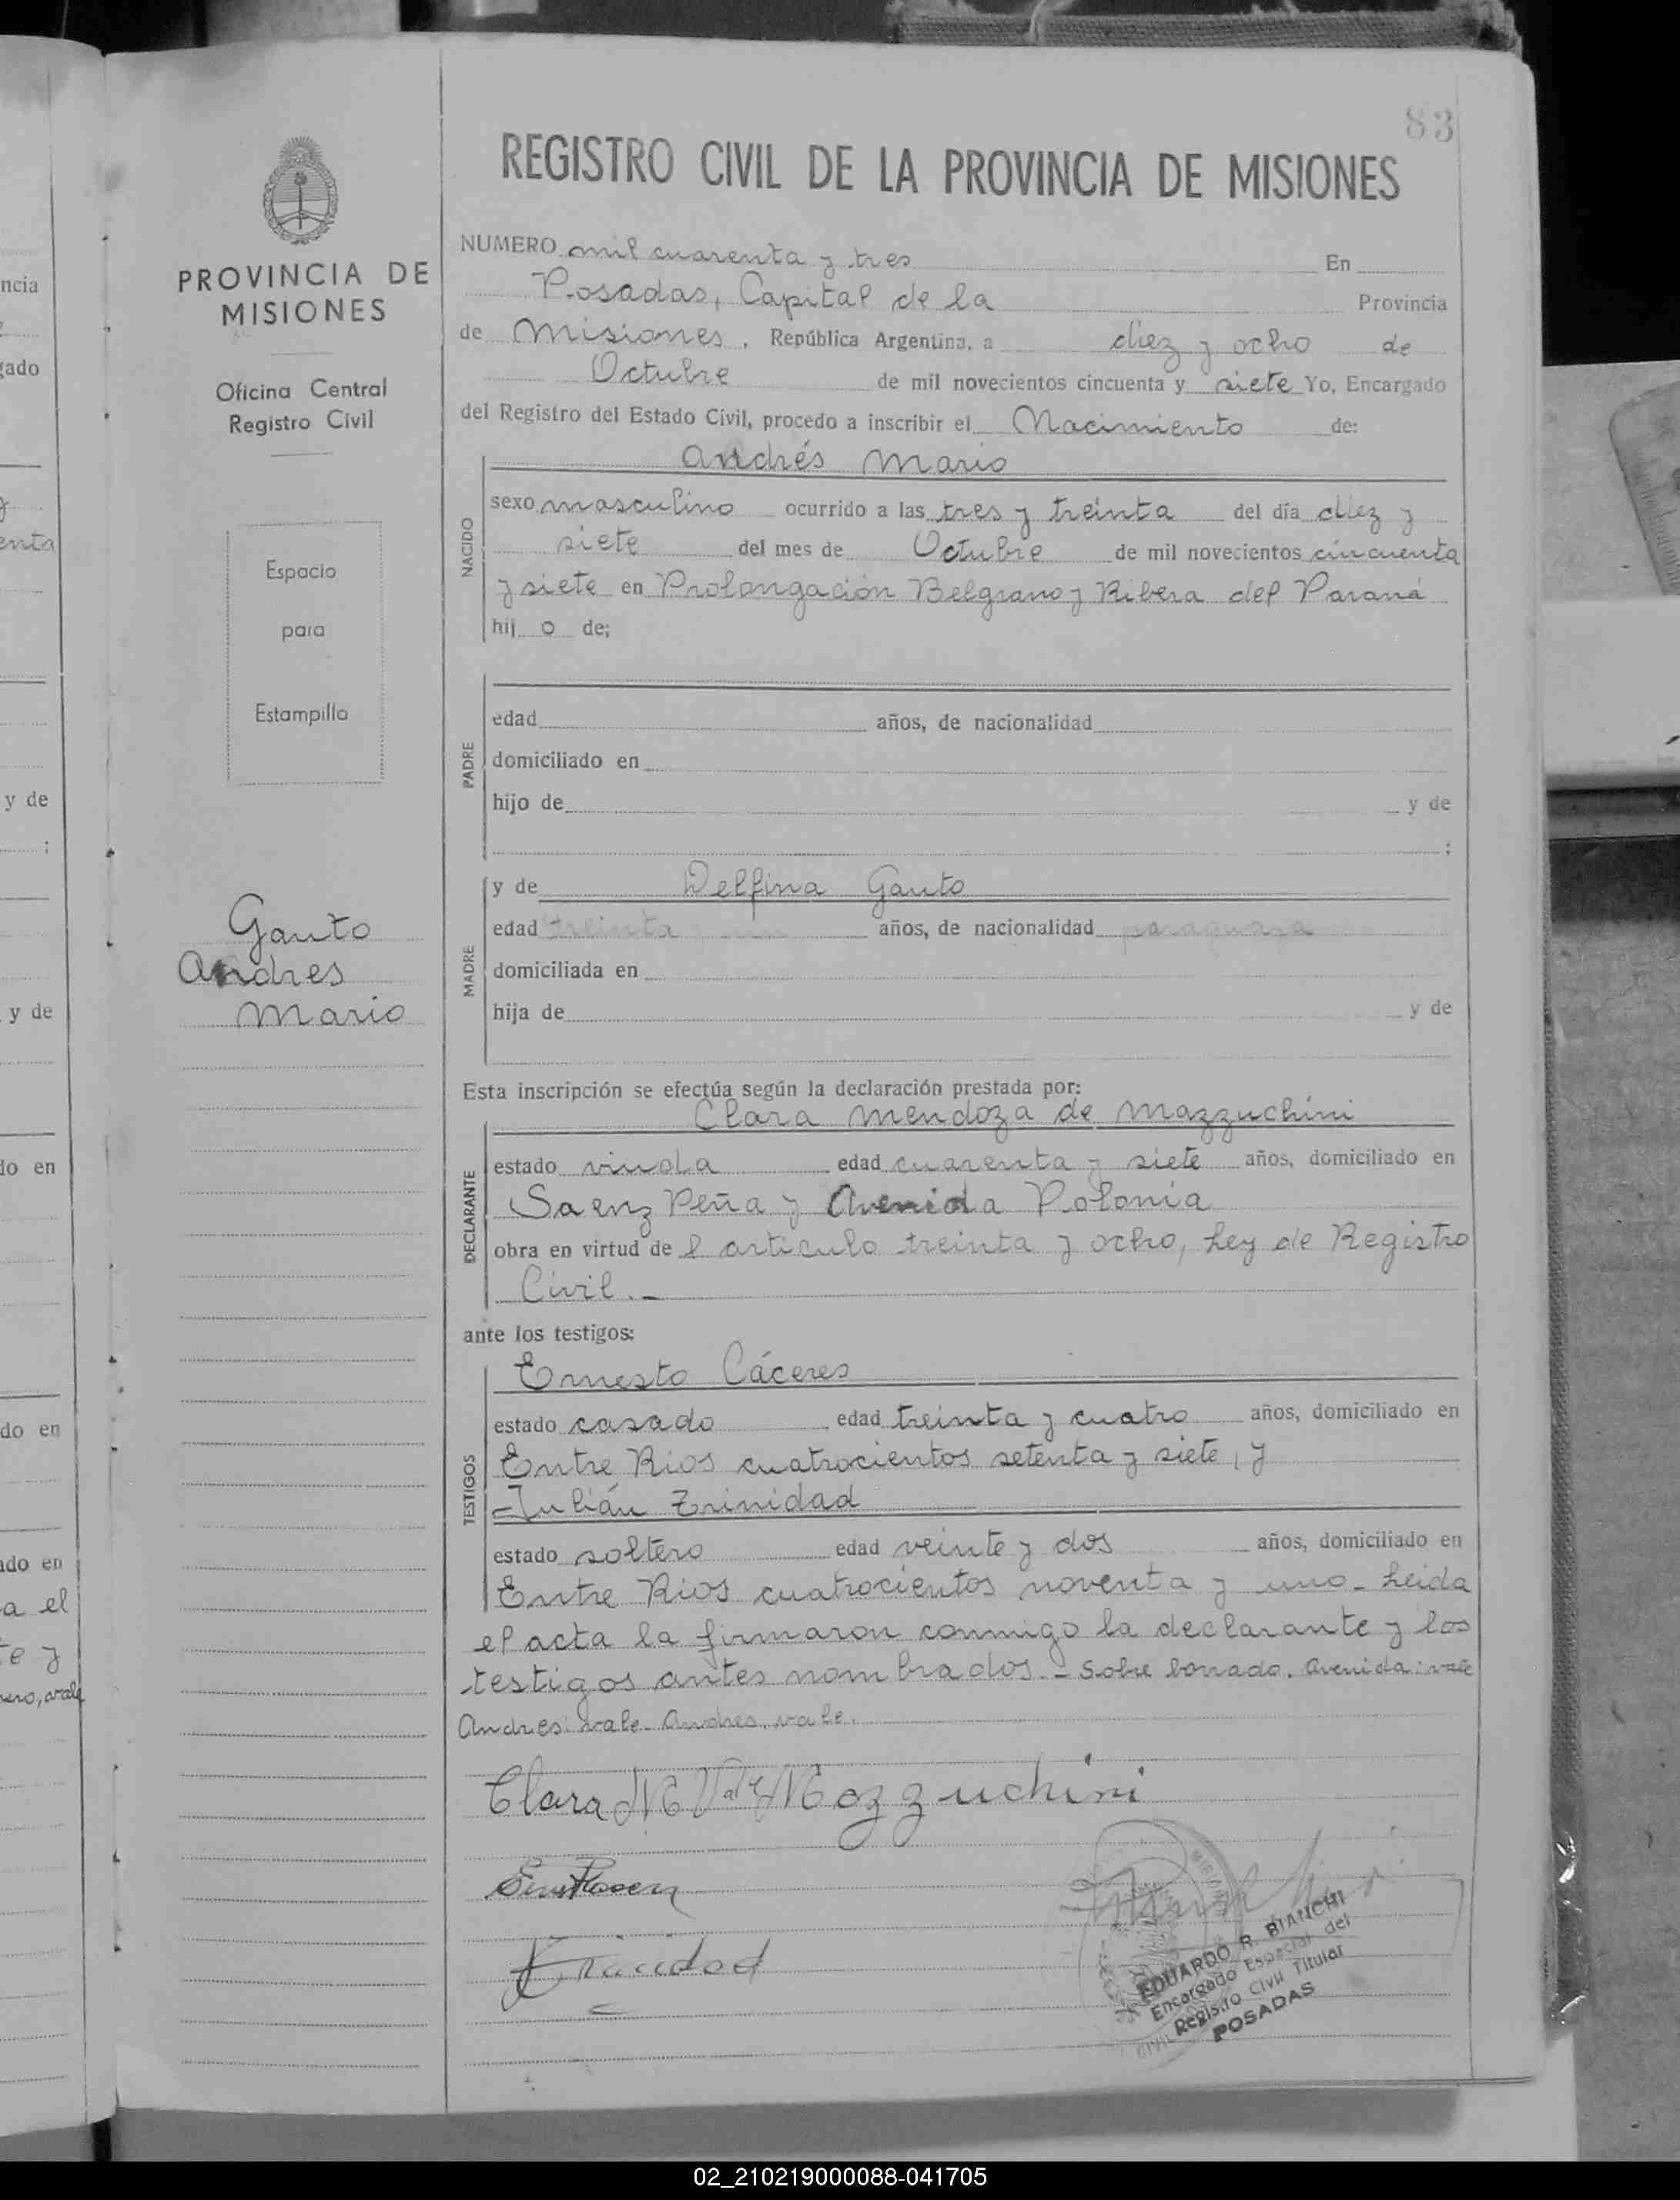 83
REGISTRO CIVIL DE LA PROVINCIA DE MISIONES
PROVINCIA DE
MISIONES
Oficina Central
Registro Civil
Espacio
para
Estampilla
Gauto
Andres
Mario
NUMERO mil cuarenta y tres En
Posadas, Capital de la Provincia
de Misiones, República Argentina, a diez y ocho de
Octubre de mil novecientos cincuenta y siete Yo, Encargado
del Registro del Estado Civil, procedo a inscribir el Nacimiento de:
NACIDO
Andrés Mario
sexo masculino ocurrido a las tres y treinta del día diez y
siete del mes de Octubre de mil novecientos cincuenta
y siete en Prolongación Belgrano y Ribera del Paraná
hij o de;
PADRE
edad años, de nacionalidad
domiciliado en
hijo de y de
;
MADRE
y de Delfina Gauto
edad treinta y un años, de nacionalidad paraguaya
domiciliada en
hija de y de
Esta inscripción se efectúa según la declaración prestada por:
DECLARANTE
Clara Mendoza de Mazzuchini
estado viuda edad cuarenta y siete años, domiciliado en
Saenz Peña y Avenida Polonia
obra en virtud de l articulo treinta y ocho, Ley de Registro
Civil.-
ante los testigos:
TESTIGOS
Ernesto Cáceres
estado casado edad treinta y cuatro años, domiciliado en
Entre Rios cuatrocientos setenta y siete, y
Julián Trinidad
estado soltero edad veinte y dos años, domiciliado en
Entre Rios cuatrocientos noventa y uno - Leida
el acta la firmaron conmigo la declarante y los
testigos antes nombrados.- Sobre borrado. Avenida: vale
Andres: vale. Andres, vale.
Clara Mozzuchini
Trinidad
EDUARDO R. BIANCHI
Encargado Especial del
Registro Civil Titular
POSADAS
ncia
gado
enta
y de
;
y de
do en
do en
ado en
a el
te y
vale
02_210219000088-041705